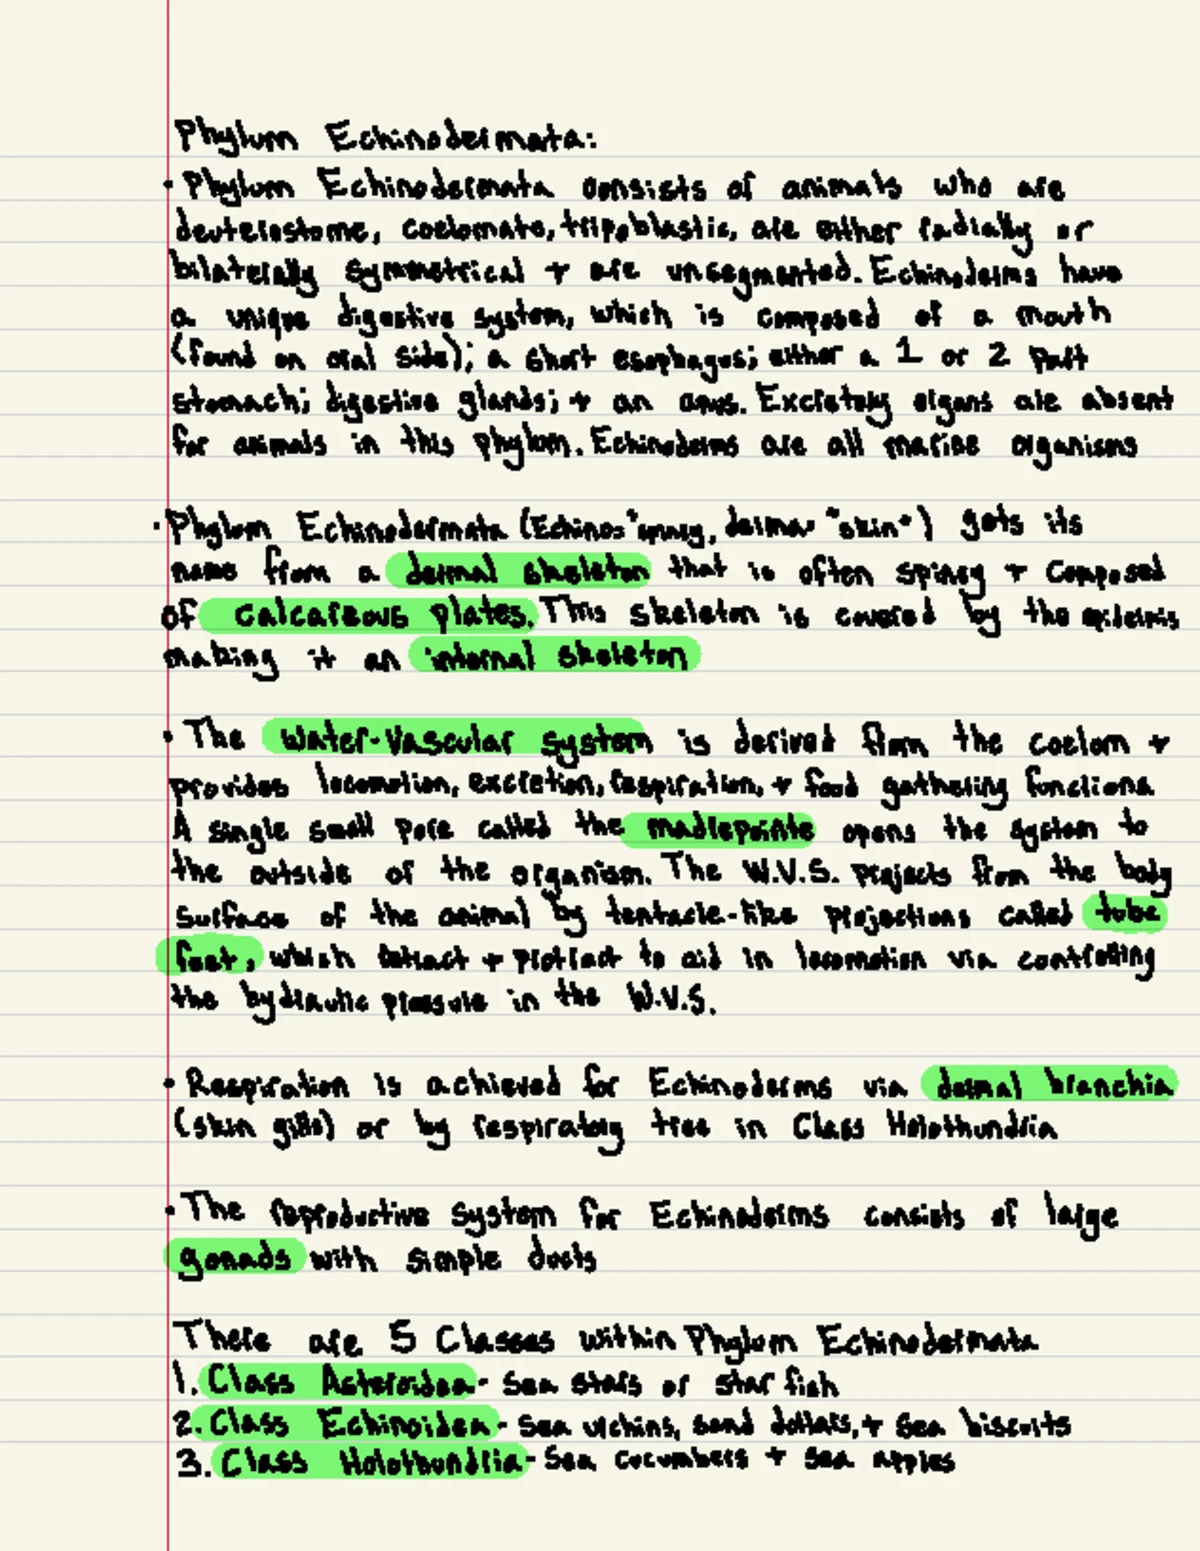 Phylum Echinodermata:
• Phylum Echinodermata consists of animals who are
deuterostome, coelomate, tripoblastic, are either radially or
bilaterally symmetrical + are unsegmented. Echinoderms have
a unique digestive system, which is composed of a mouth
(found on oral side); a short esophagus; either a 1 or 2 part
stomach; digestive glands; + an anus. Excretory organs are absent
for animals in this phylum. Echinoderms are all marine organisms
• Phylum Echinodermata (Echinos="spiney, derma= "skin") gets its
name from a dermal skeleton that is often spiney + composed
of calcareous plates. This skeleton is covered by the epidermis
making it an internal skeleton
• The Water-Vascular system is derived from the coelom +
provides locomotion, excretion, respiration, + food gathering functions
A single small pore called the madrepointe opens the system to
the outside of the organism. The W.V.S. projects from the body
surface of the animal by tentacle-like projections called tube
feet, which retract + protract to aid in locomotion via controlling
the hydraulic pressure in the W.V.S.
• Respiration is achieved for Echinoderms via dermal branchia
(skin gills) or by respiratory tree in Class Holothundria
• The reproductive system for Echinoderms consists of large
gonads with simple ducts
There are 5 Classes within Phylum Echinodermata
1. Class Asteroidea - sea stars or star fish
2. Class Echinoidea - sea urchins, sand dollars, + sea biscuits
3. Class Holothundria - Sea cucumbers + sea apples